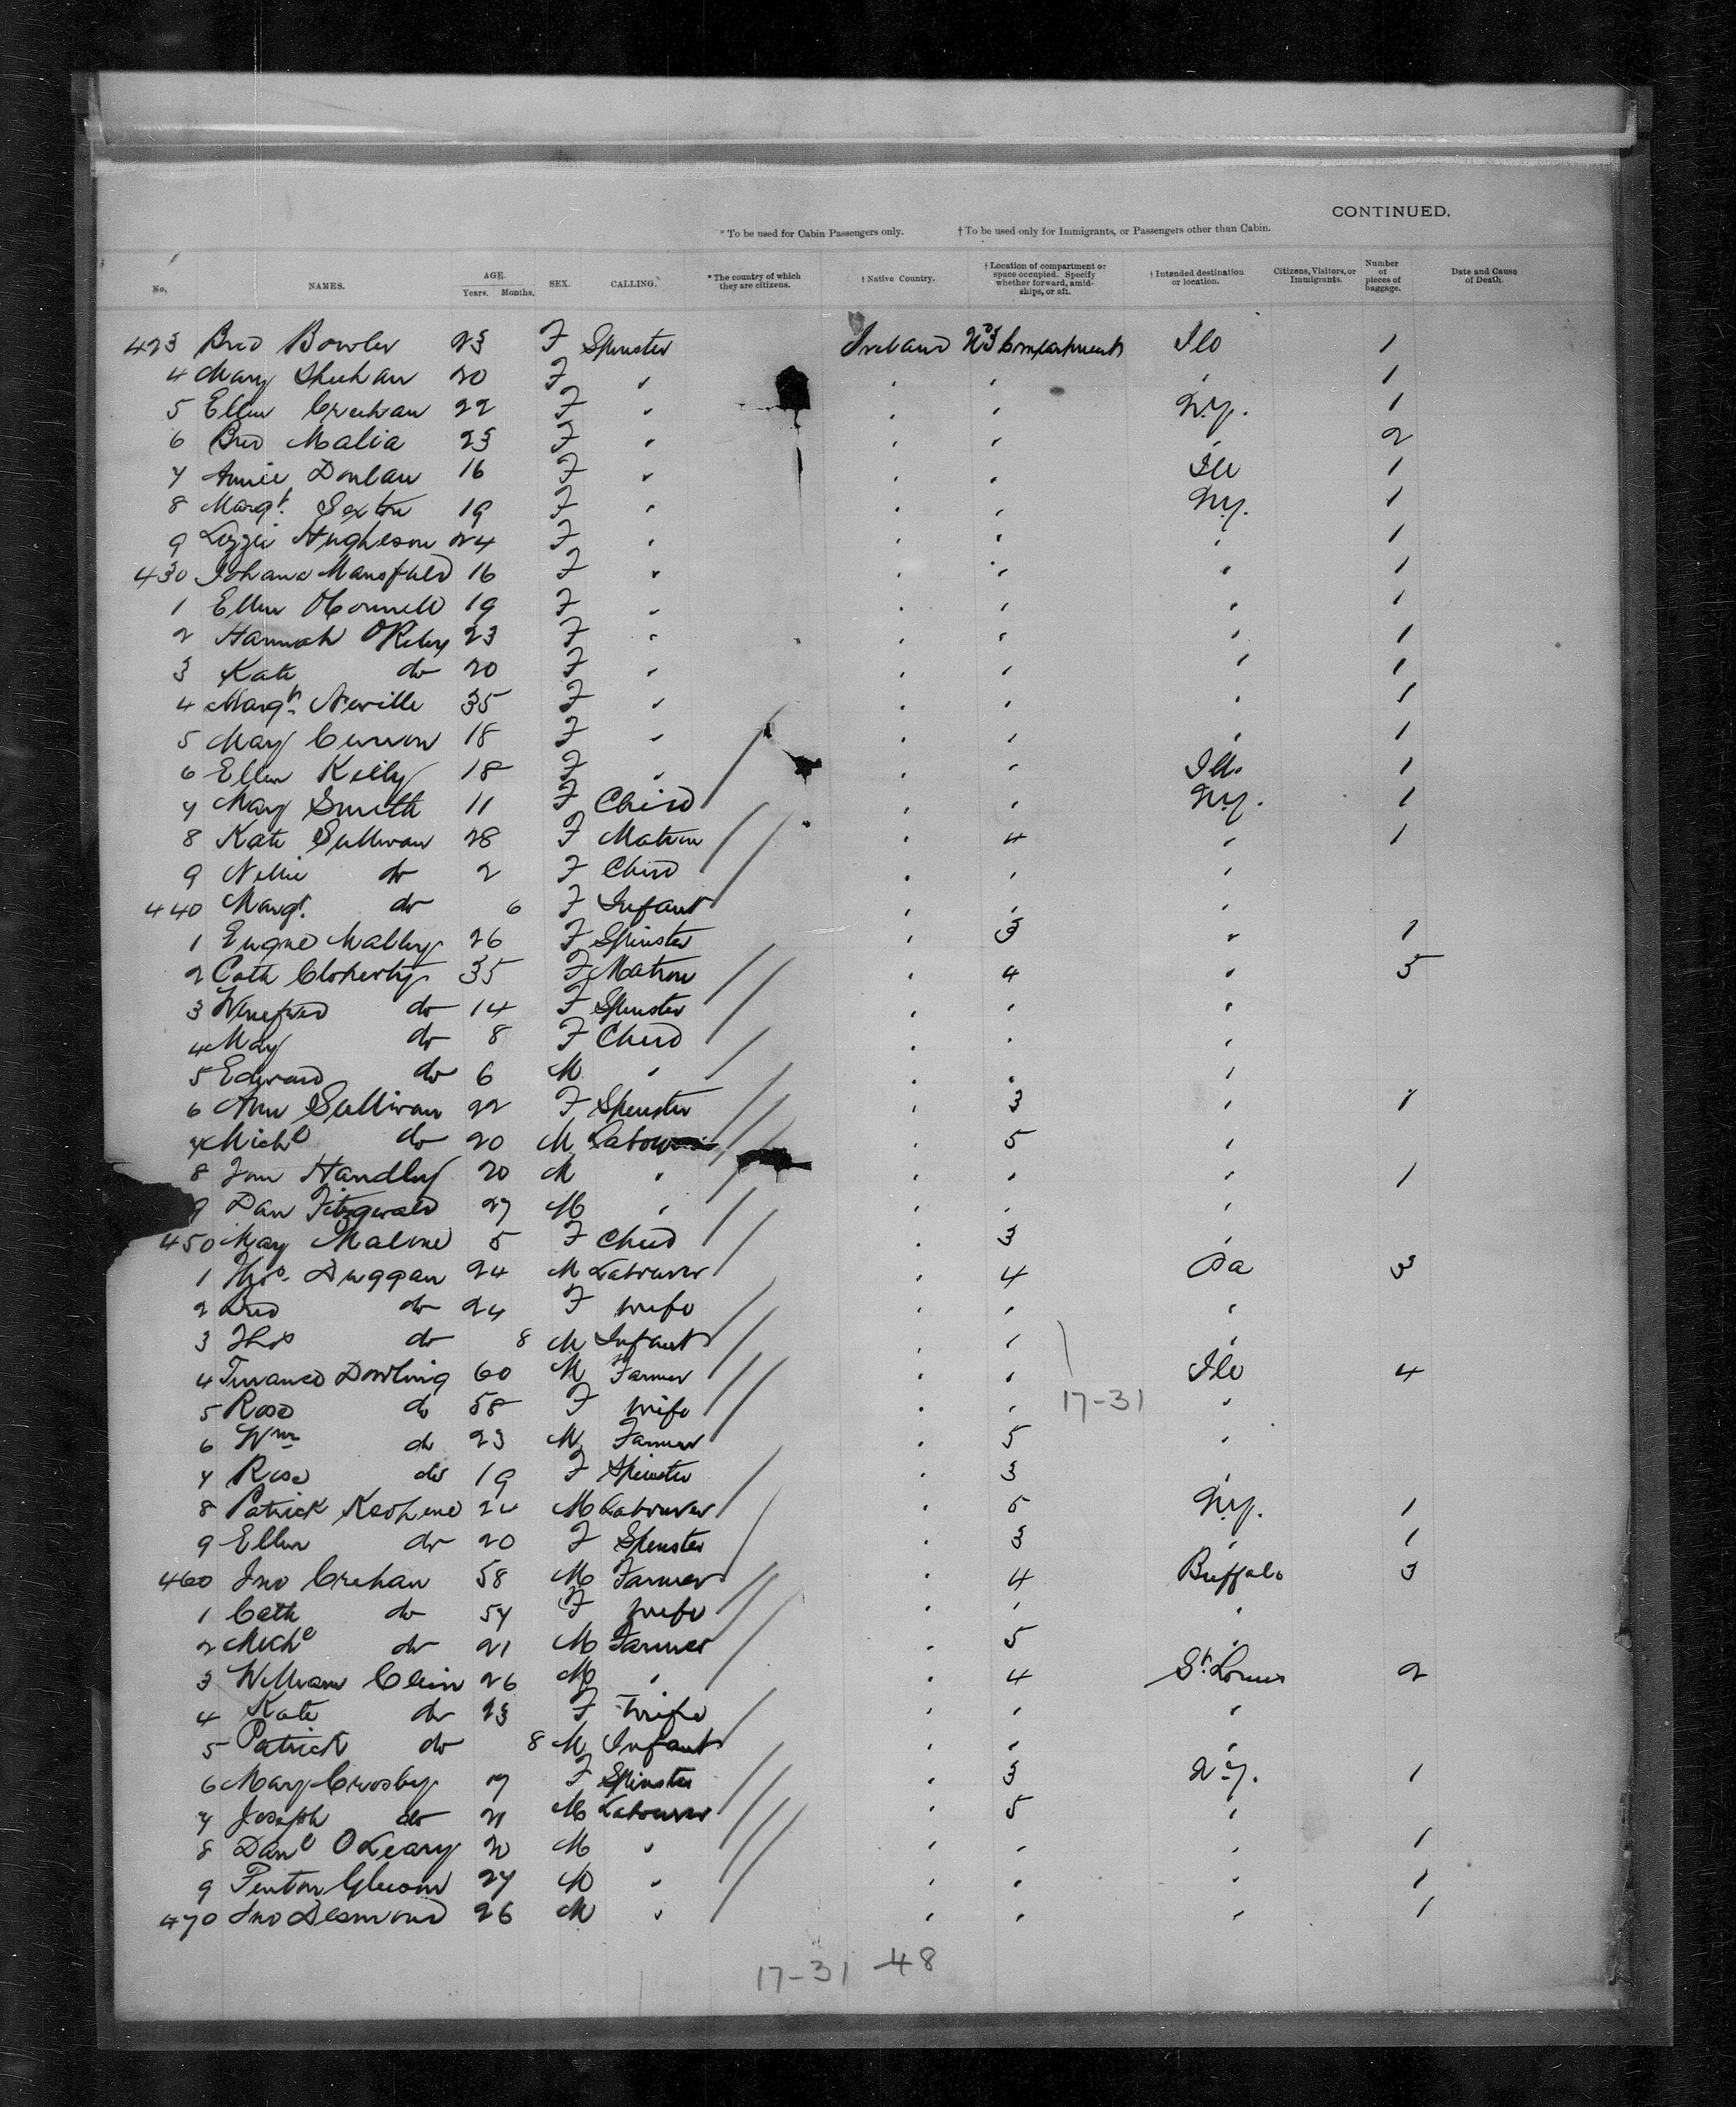 CONTINUED.
* To be used for Cabin Passengers only. † To be used only for Immigrants, or Passengers other than Cabin.
No. NAMES. AGE. Years. Months. SEX. CALLING. * The country of which they are citizens. † Native Country. † Location of compartment or space occupied. Specify whether forward, amidships, or aft. † Intended destination or location. Citizens, Visitors, or Immigrants. Number of pieces of baggage. Date and Cause of Death.
423 Brid Bowler 23 F Spinster Ireland No 3 Compartment Ill 1
4 Mary Sheehan 20 F " " " " 1
5 Ellen Creehan 22 F " " " N.Y. 1
6 Brid Malia 23 F " " " " 2
7 Annie Donlan 16 F " " " Ill 1
8 Margt. Sexton 19 F " " " N.Y. 1
9 Lizzie Hugheson 24 F " " " " 1
430 Johana Mansfield 16 F " " " " 1
1 Ellen OConnell 19 F " " " " 1
2 Hannah ORiley 23 F " " " " 1
3 Kate do 20 F " " " " 1
4 Margt. Neville 35 F " " " " 1
5 Mary Curran 18 F " " " " 1
6 Ellen Kelly 18 F " " " Ill. 1
7 Mary Smith 11 F Child " " N.Y. 1
8 Kate Sullivan 28 F Matron " 4 " 1
9 Nellie do 2 F Child " " "
440 Margt. do 6 F Infant " " "
1 26 F Spinster " 3 " 1
2 Cath Cloherty 35 F Matron " 4 " 5
3 Winefred do 14 F Spinster " " "
4 May do 8 F Child " " "
5 Edward do 6 M " " " "
6 Ann Sullivan 22 F Spinster " 3 " 1
7 Michl do 20 M Labourer " 5 "
8 Handley 20 M " " " " 1
9 Dan Fitzgerald 27 M " " " "
450 May Malone 5 F Child " 3 "
1 Thos. Duggan 24 M Labourer " 4 Pa 3
2 Brid do 24 F wife " " "
3 Thos do 8 M Infant " " "
4 Dowling 60 M Farmer " " Ill 4
5 Rose do 58 F wife " " 17-31 "
6 Wm do 23 M Farmer " 5 "
7 Rose do 19 F Spinster " 3 "
8 Patrick Keohene 24 M Labourer " 5 N.Y. 1
9 Ellen do 20 F Spinster " 3 " 1
460 Jno Crehan 58 M Farmer " 4 Buffalo 3
1 Cath do 57 F wife " " "
2 Michl do 21 M Farmer " 5 "
3 William 26 M " " 4 St. Louis 2
4 Kate do 23 F wife " " "
5 Patrick do 8 M Infant " " "
6 Mary Crosby 19 F Spinster " 3 N.Y. 1
7 Joseph do 21 M Labourer " 5 "
8 Danl OLeary 20 M " " " " 1
9 27 M " " " " 1
470 Jno Desmond 26 M " " " " 1
17-31 48